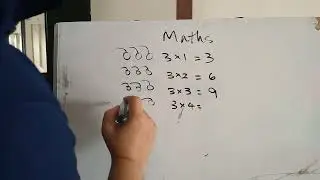 Maths
3×1=3
3×2=6
3×3=9
3×4=